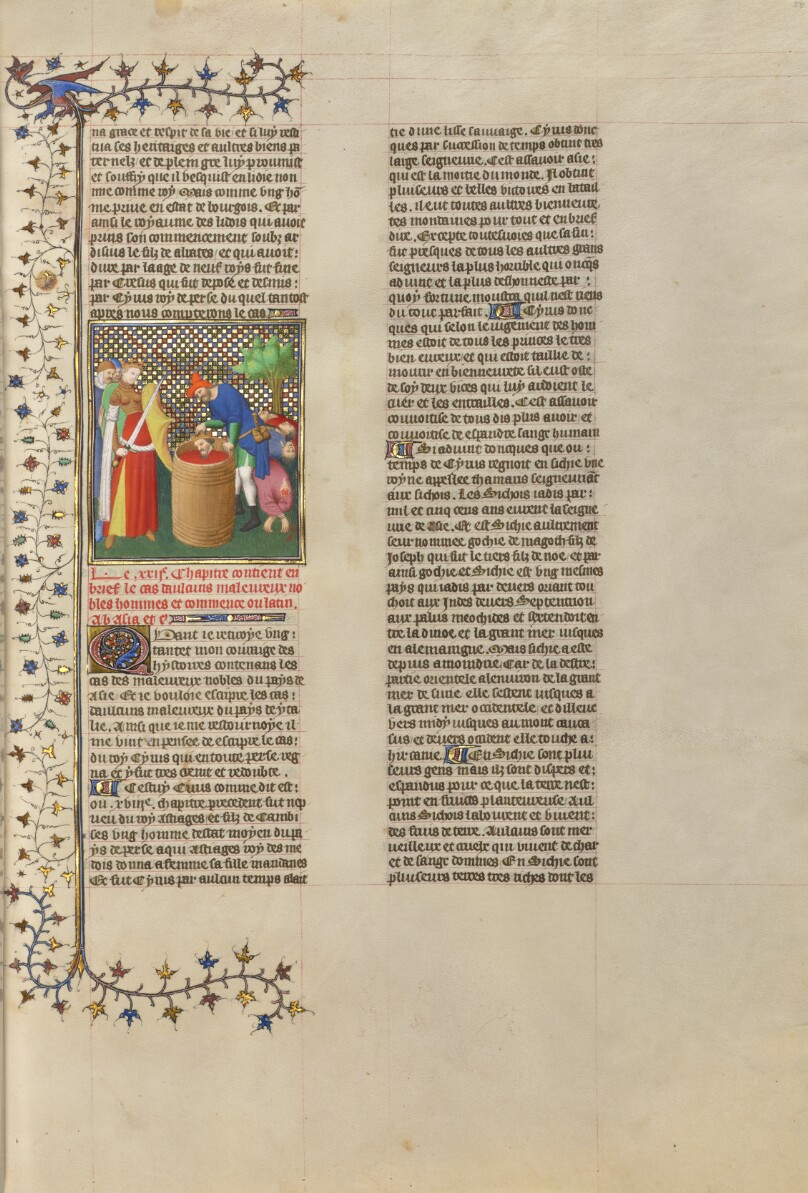 na grace et respit de sa vie et si luy resti
tua ses heritaiges et aultres biens pa
ternelz et de plein gre luy promist
et souffry que il vesquist en lidie non
mie comme roy Mais comme ung hõ
me prive en estat de bourgois. Et par
ainsi le royaume des lidois qui avoit
prins son commencement soubz ar
disius le filz de aliates et qui avoit:
dure par laage de neuf roys fut fine
par Cresus qui fut depose et desmis:
par Cyrus roy de perse du quel tantost
apres nous compterons le cas
Le .xxie. Chapitre contient en
brief le cas daulcuns maleureux no
bles hommes et commence ou latin.
Ab Asia et cet
Quant ie renvoye ung:
tantet mon couraige des
hystoires contenans les
cas des maleureux nobles du pays de
Asie. Et ie vouloie escripre les cas:
daulcuns maleureux du pays de yta
lie. Ainsi que ie me restournoye il
me vint en pensee de escripre le cas:
du roy Cyrus qui en toute perse reg
na et y fut tres cremt et redoubte.
Cestuy Cirus comme dit est:
ou .xviiie. chapitre precedent fut nep
veu du roy astiages et filz de Cambi
ses ung homme destat moyen du pa
ys de perse a qui Astiages roy des me
dois donna a femme sa fille mandanes
Et fut Cyrus par aulcun temps alait
tie dune lisse sauvaige. Cyrus donc
ques par succession de temps obtint tres
large seigneurie. Cest assavoir asie:
qui est la moitie du monde. Il obtint
pluseurs et belles victoires en batail
les. il eut toutes aultres bieneure
tes mondaines pour tout et en brief
dire. Excepte toutesvoies que sa fin:
fut presques de tous les aultres grans
seigneurs la plus horrible qui oncqs
advint et la plus deshonneste par:
quoy fortune moustra quil nest riens
du tout parfait. Cyrus donc
ques qui selon le iugement des hom
mes estoit de tous les princes le tres
bien eureux et qui estoit taillie de:
mourir en bieneurete sil eust oste
de soy deux vices qui luy ardoient le
cuer et les entrailles. Cest assavoir
convoitise de tous dis plus avoir et
convoitise de espandre sang humain
Si advint doncques que ou:
temps de Cyrus regnoit en sichie une
royne appellee thamaris seigneurãt
aux sichois. Les Sichois iadis par:
mil et cinq cens ans eurent la seigne
urie de Asie. Et est Sichie aultrement
seur nommee gochie de magoch filz de
Joseph qui fut le tiers filz de noe. et par
ainsi gochie et Sichie est ung mesmes
pays qui iadis par devers orient tou
choit aux Indes devers Septentrion
aux palus meochides et sextendoit en
tre la dinoe et la grant mer iusques
en alemaingne. Mais sichie a este
depuis amoindrie. Car de la destre:
partie orientele alenviron de la grant
mer de surie elle sestent iusques a
la grant mer occidentele et dilleuc
vers midy iusques au mont cauca
sus et devers occident elle touche a:
hircanie. En Sichie sont plu
seurs gens mais ilz sont dispers et:
espandus pour ce que la terre nest:
point en fruits plantureuse Aul
cuns Sichois labourent et vivent:
des fruis de terre. Aulcuns sont mer
veilleux et cruelx qui vivent de char
et de sang dommes. En Sichie sont
pluseurs terres tres riches dont les